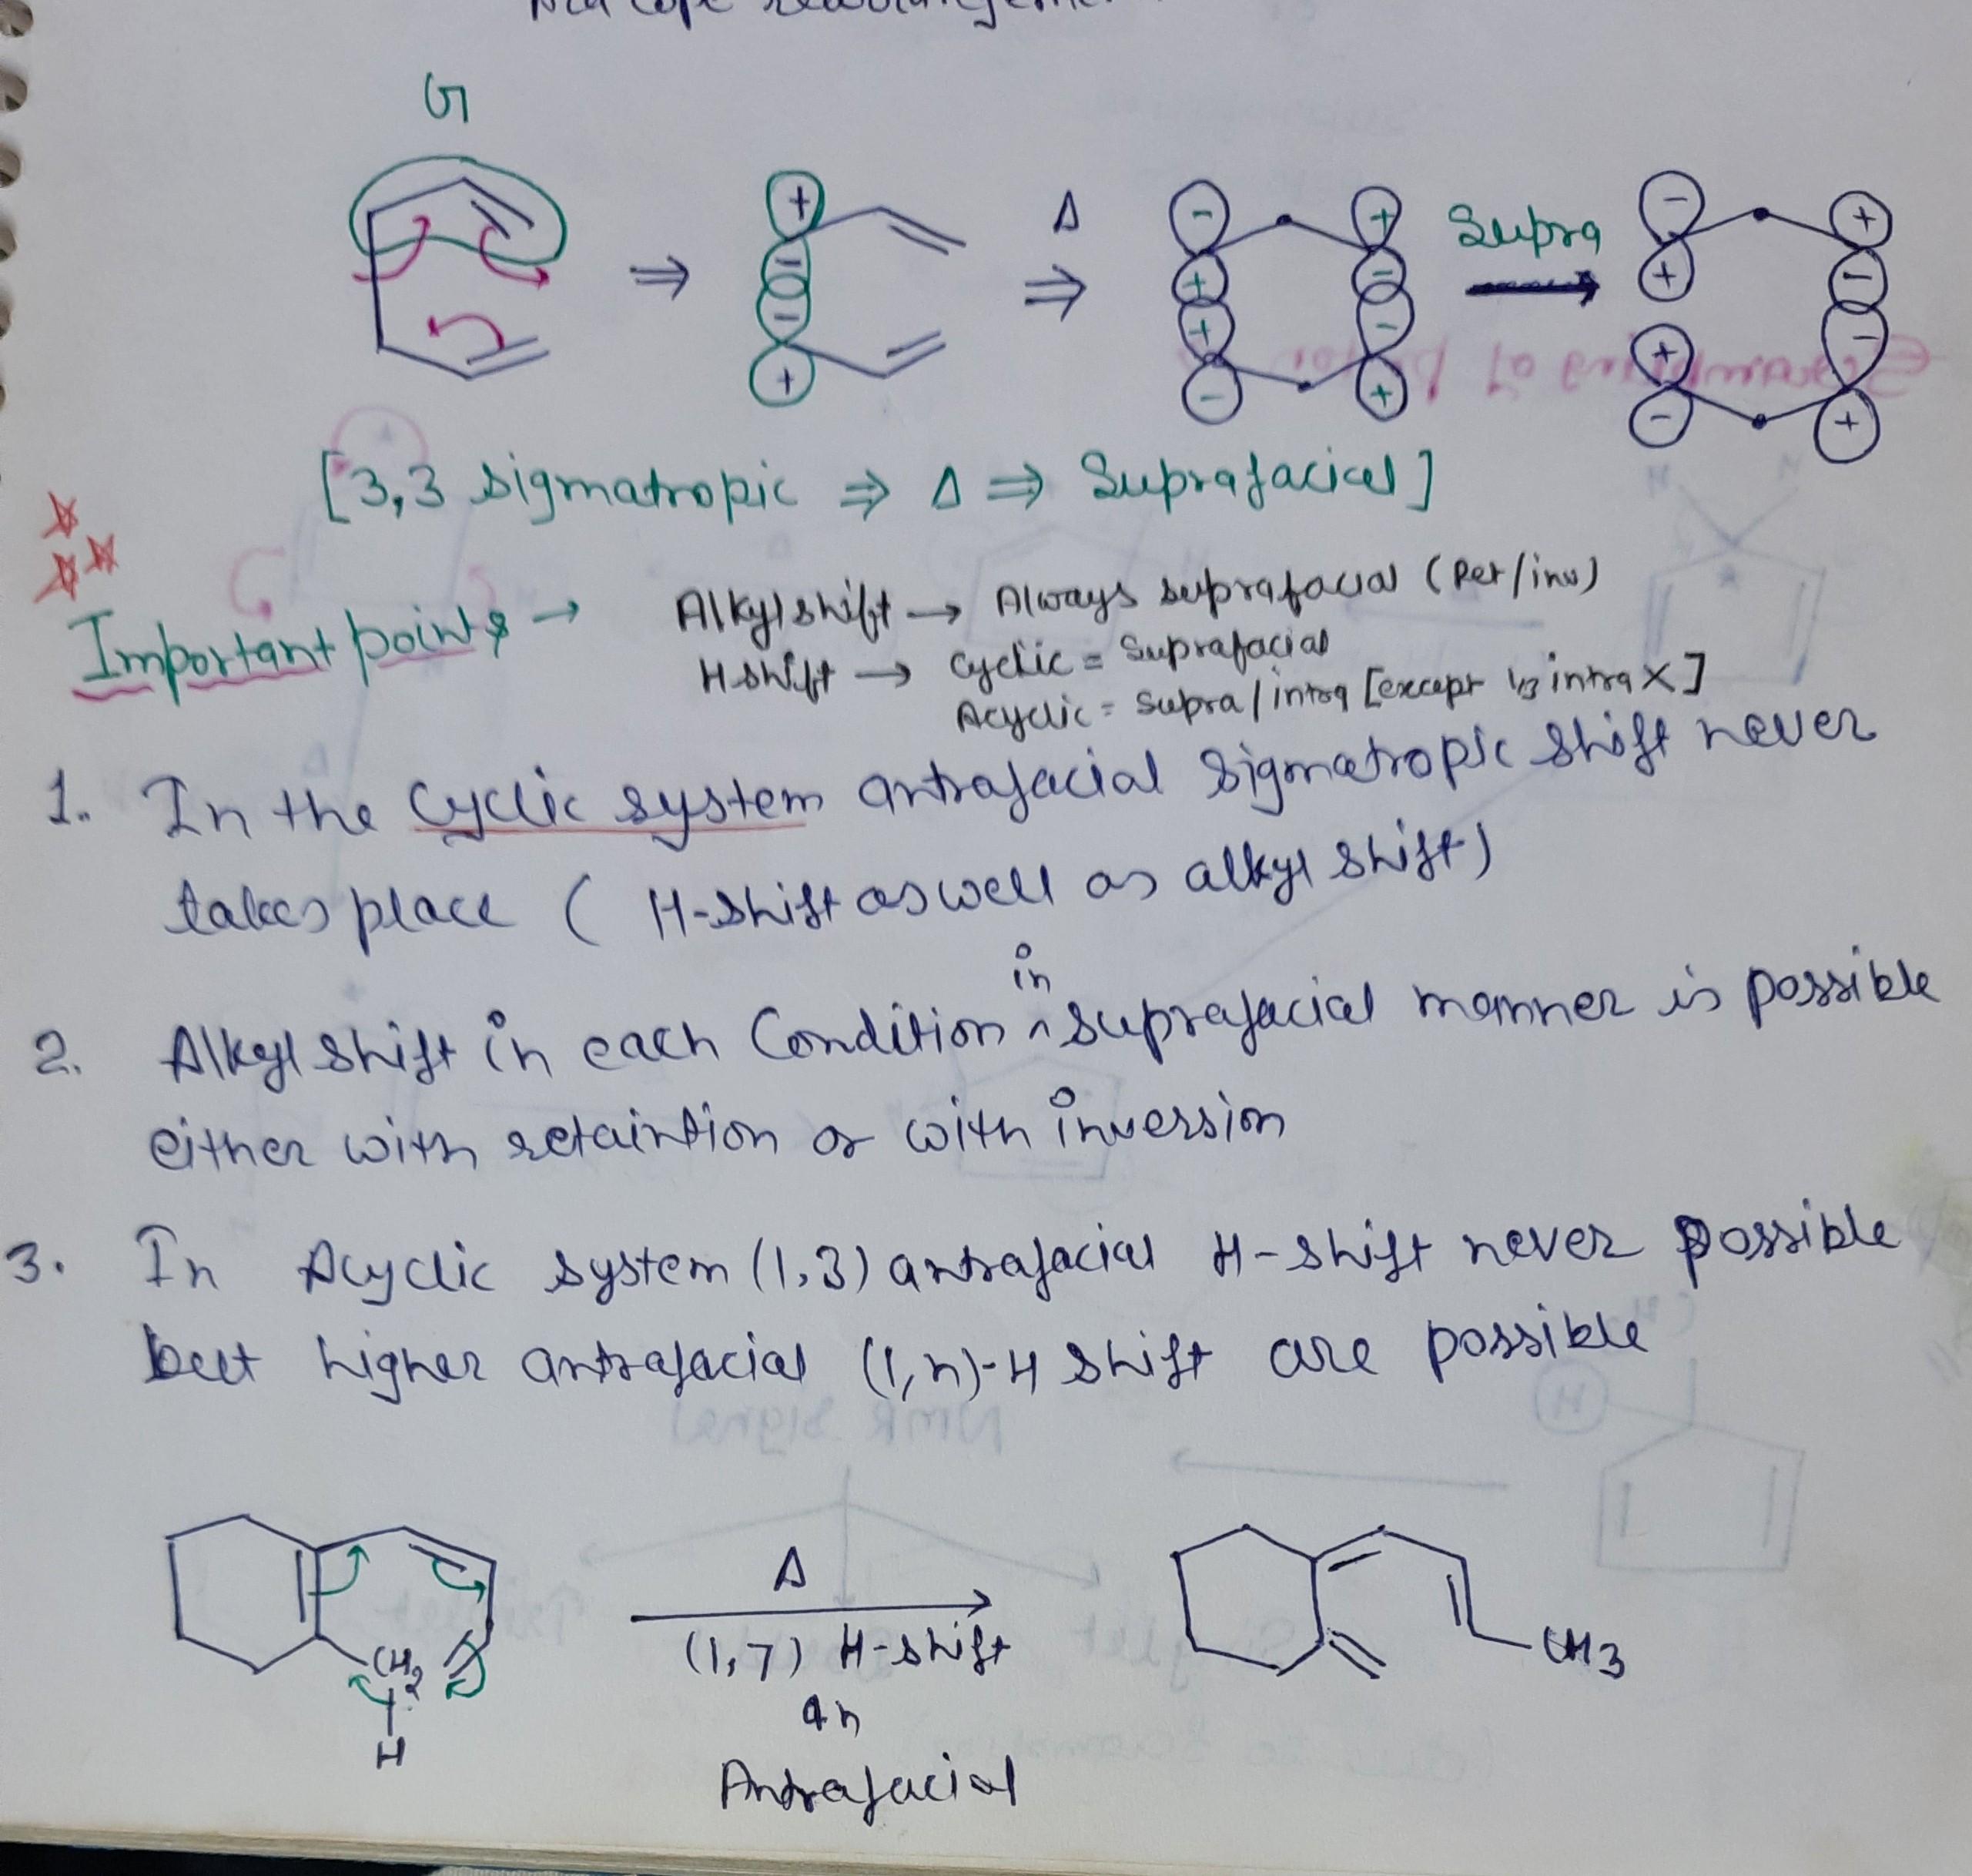 G
+
-
-
+
Δ
- +
+ -
+ -
- +
Supra
- +
+ -
+ -
- +
[3,3 Sigmatropic ⇒ Δ ⇒ Suprafacial]
Important points → Alkyl shift → Always suprafacial (Ret/inv)
H shift → cyclic = Suprafacial
Acyclic = Supra/intra [except 1,3 intra X]
1. In the cyclic system antrafacial sigmatropic shift never
takes place ( H-shift as well as alkyl shift)
2. Alkyl shift in each Condition in suprafacial manner is possible
either with retaintion or with inversion
3. In Acyclic system (1,3) antrafacial H-shift never possible
but higher antrafacial (1,n)-H shift are possible
CH2
H
Δ
(1,7) H-shift
4n
Antrafacial
CH3